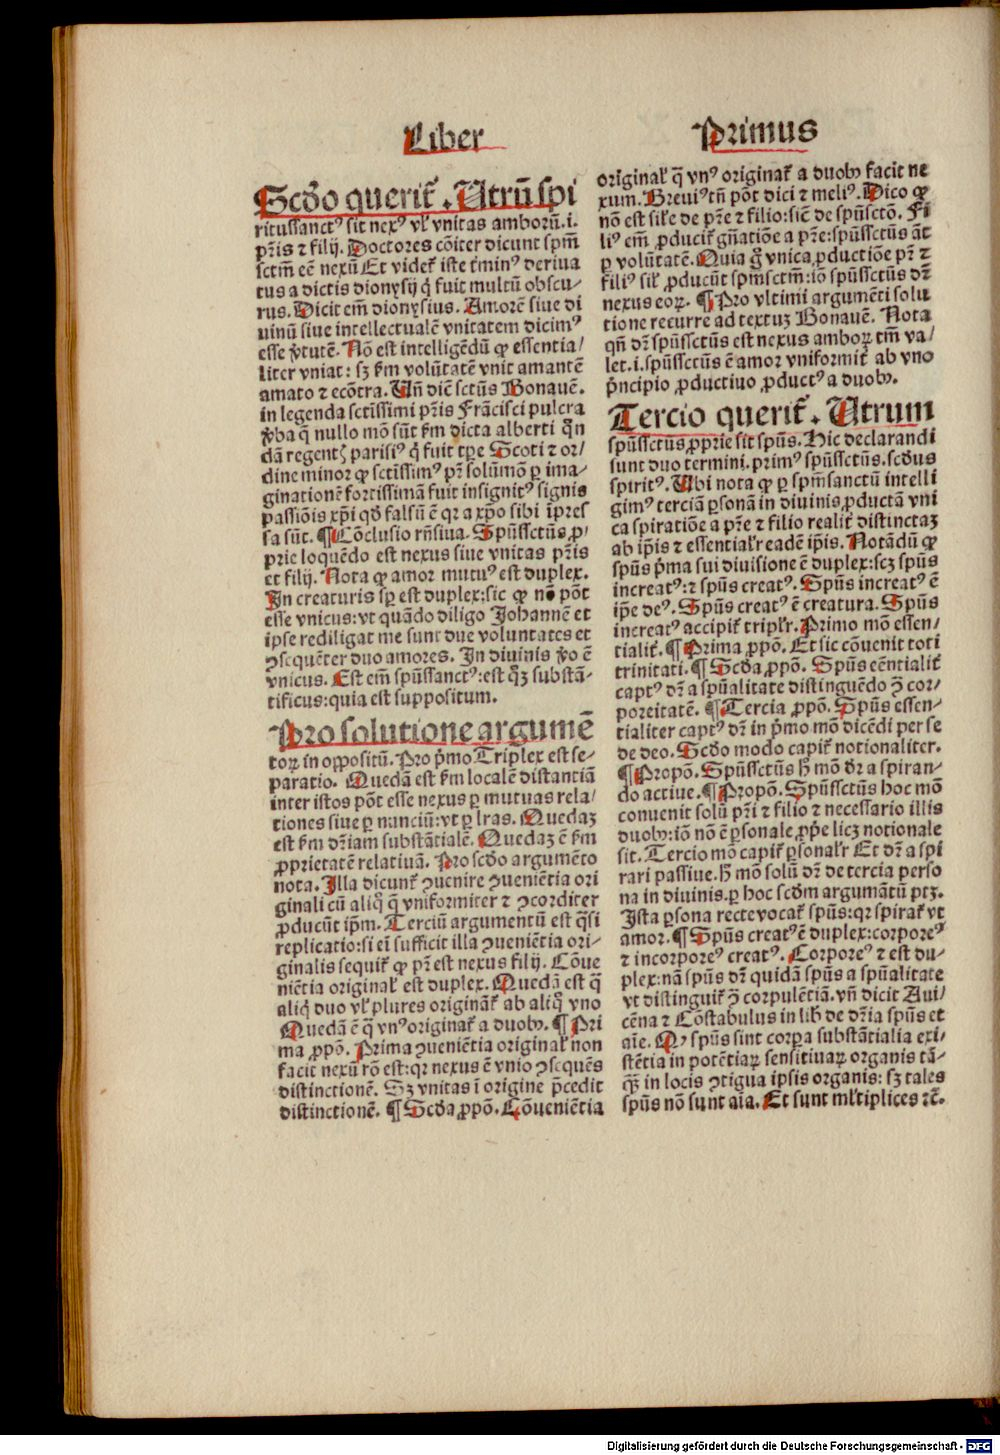 Liber
Primus
Scd̄o querit̄. Utrū spi
ritussanctꝰ sit nexꝰ vl̄ vnitas amborū.i.
pr̄is ⁊ filij. Doctores cōiter dicunt spm̄
sctm̄ eē nexū Et videt̄ iste t̄minꝰ deriua
tus a dictis dionysij q̄ fuit multū obscu-
rus. Dicit em̄ dionysius. Amorē siue di
uinū siue intellectualē vnitatem dicimꝰ
esse v̄tutē. Nō est intelligēdū ꝙ essentia/
liter vniat: sꝫ ẜm volūtatē vnit amantē
amato ⁊ ecōtra. Un̄ diē sctūs Bonauē.
in legenda sctissimi pr̄is Frācisci pulcra
v̄ba q̄ nullo mō sūt ẜm dicta alberti qn̄
dā regentꝭ parisiꝰ q̄ fuit tpe Scoti ⁊ or/
dine minoꝝ ꝙ sctissimꝰ pr̄ solūmō ꝑ ima-
ginationē fortissimā fuit insignitꝰ signis
passiōis xp̄i qd̄ falsū ē qr a xp̄o sibi īpres
sa sūt. ¶ Cōclusio rn̄siua. Spūssctūs ꝓ/
prie loquēdo est nexus siue vnitas pr̄is
et filij. Nota ꝙ amor mutuꝰ est duplex.
In creaturis sp̄ est duplex:sic ꝙ nō pōt
esse vnicus:vt quādo diligo Johannē et
ipse rediligat me sunt due voluntates et
ꝯsequēter duo amores. In diuinis v̄o ē
vnicus. Est em̄ spūssanctꝰ:est qꝫ substā-
tificus:quia est suppositum.
Pro solutione argumē
toꝝ in oppositū. Pro pͥmo Triplex est se-
paratio. Quedā est ẜm localē distantiā
inter istos pōt esse nexus ꝑ mutuas rela/
tiones siue ꝑ nunciū:vt ꝑ lr̄as. Quedaꝫ
est ẜm dr̄iam substātialē. Quedaꝫ ē ẜm
ꝓprietatē relatiuā. Pro scd̄o argumēto
nota. Illa dicunt̄ ꝯuenire ꝯueniētia ori
ginali cū aliqͥ q̄ vniformiter ⁊ ꝯcorditer
ꝓducūt ip̄m. Terciū argumentū est qͣsi
replicatio:si ei̇ sufficit illa ꝯueniētia ori-
ginalis sequit̄ ꝙ pr̄ est nexus filij. Cōue
niētia original̄ est duplex. Quedā est q̄
aliqͥ duo vl̄ plures origināt̄ ab aliqͥ vno
Quedā ē q̄ vnꝰ originat̄ a duobꝰ. ¶ Pri
ma ꝓpō. Prima ꝯueniētia original̄ non
facit nexū rō est:qr nexus ē vnio ꝯsequēs
distinctionē. Sꝫ vnitas ī origine p̄cedit
distinctionē. ¶ Scd̄a ꝓpō. Cōueniētia
original̄ q̄ vnꝰ originat̄ a duobꝰ facit ne
xum. Breuiꝰ tn̄ pōt dici ⁊ meliꝰ. Dico ꝙ
nō est sil̄e de pr̄e ⁊ filio:sic̄ de spūsctō. Fi
liꝰ em̄ ꝓducit̄ gn̄atiōe a pr̄e:spūssctūs āt
ꝑ volūtatē. Quia g̊ vnica ꝓductiōe pr̄ ⁊
filiꝰ sil̄ ꝓducūt spm̄sctm̄:iō spūssctūs dr̄
nexus eoꝝ. ¶ Pro vltimi argumēti solu
tione recurre ad textuꝫ Bonauē. Nota
qn̄ dr̄ spūssctūs est nexus amboꝝ tm̄ va/
let.i.spūssctūs ē amor vniformit̄ ab vno
pͥncipio ꝓductiuo ꝓductꝰ a duobꝰ.
Tercio querit̄. Utrum
spūssctus ꝓprie sit spūs. Hic declarandi
sunt duo termini. primꝰ spūssctūs. scd̄us
spiritꝰ. Ubi nota ꝙ ꝑ spm̄sanctū intelli
gimꝰ terciā ꝑsonā in diuinis ꝓductā vni
ca spiratiōe a pr̄e ⁊ filio realit̄ distinctaꝫ
ab ip̄is ⁊ essential̄r eadē ip̄is. Notādū ꝙ
spūs pͥma sui diuisione ē duplex:scꝫ spūs
increatꝰ:⁊ spūs creatꝰ. Spūs increatꝰ ē
ip̄e deꝰ. Spūs creatꝰ ē creatura. Spūs
increatꝰ accipit̄ tripl̄r. Primo mō essen/
tialit̄. ¶ Prima ꝓpō. Et sic cōuenit toti
trinitati. ¶ Scd̄a ꝓpō. Spūs eēntialit̄
captꝰ dr̄ a spūalitate distinguēdo ꝯ̄ cor-
poreitatē. ¶ Tercia ꝓpō. Spūs essen-
tialiter captꝰ dr̄ in pͥmo mō dicēdi per se
de deo. Scd̄o modo capit̄ notionaliter.
¶ Propō. Spūssctūs h̄ mō dr̄ a spiran-
do actiue. ¶ Propō. Spūssctūs hoc mō
conuenit solū pr̄i ⁊ filio ⁊ necessario illis
duobꝰ:iō nō ē ꝑsonale ꝓpͥe licꝫ notionale
sit. Tercio mō capit̄ ꝑsonal̄r Et dr̄ a spi
rari passiue. h̄ mō solū dr̄ de tercia perso
na in diuinis. ꝑ hoc scd̄m argumātū ptꝫ.
Ista ꝑsona recte vocat̄ spūs:qr spirat̄ vt
amor. ¶ Spūs creatꝰ ē duplex:corporeꝰ
⁊ incorporeꝰ creatꝰ. Corporeꝰ ⁊ est du-
plex:nā spūs dr̄ quidā spūs a spūalitate
vt distinguit̄ ꝯ̄ corpulētiā. vn̄ dicit Aui/
cēna ⁊ Cōstabulus in lib̄ de dr̄ia spūs et
aīe. Qꝰ spūs sint corꝑa substātialia exi/
stētia in potētiaꝝ sensitiuaꝝ organis tā-
qͣꝫ in locis ꝯtigua ipsis organis: sꝫ tales
spūs nō sunt aīa. Et sunt ml̄tiplices ⁊c̄.
Digitalisierung gefördert durch die Deutsche Forschungsgemeinschaft - DFG